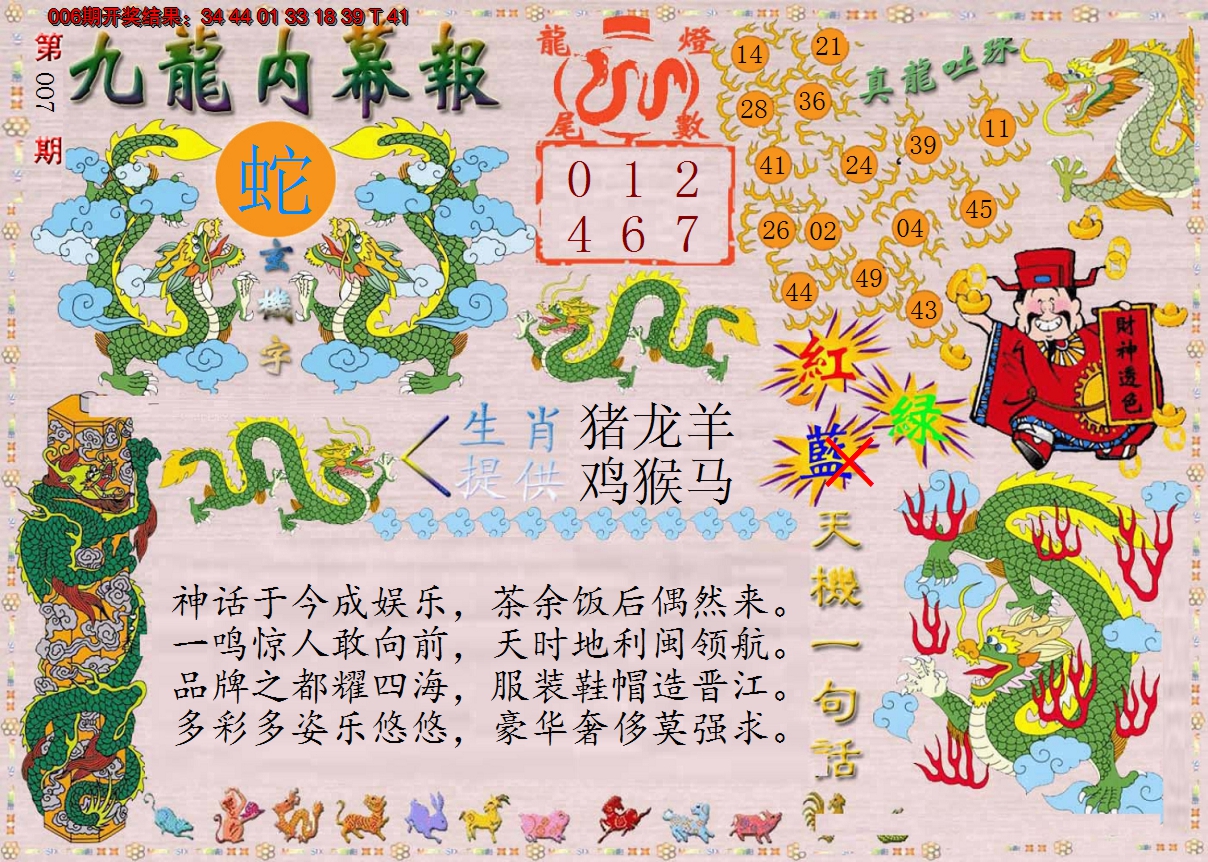 006期开奖结果：34 44 01 33 18 39 T 41
第007期
九龍内幕報
蛇
玄機字
龍燈尾數
0 1 2
4 6 7
14 21
28 36
41 24 39 11
26 02 04 45
44 49 43
真龍吐珠
財神透色
紅
綠
藍
生肖 猪龙羊
提供 鸡猴马
天機一句话
神话于今成娱乐，茶余饭后偶然来。
一鸣惊人敢向前，天时地利闽领航。
品牌之都耀四海，服装鞋帽造晋江。
多彩多姿乐悠悠，豪华奢侈莫强求。